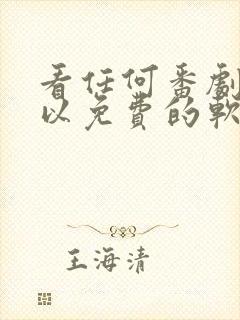 看任何番劇
以免費的軟
王海清